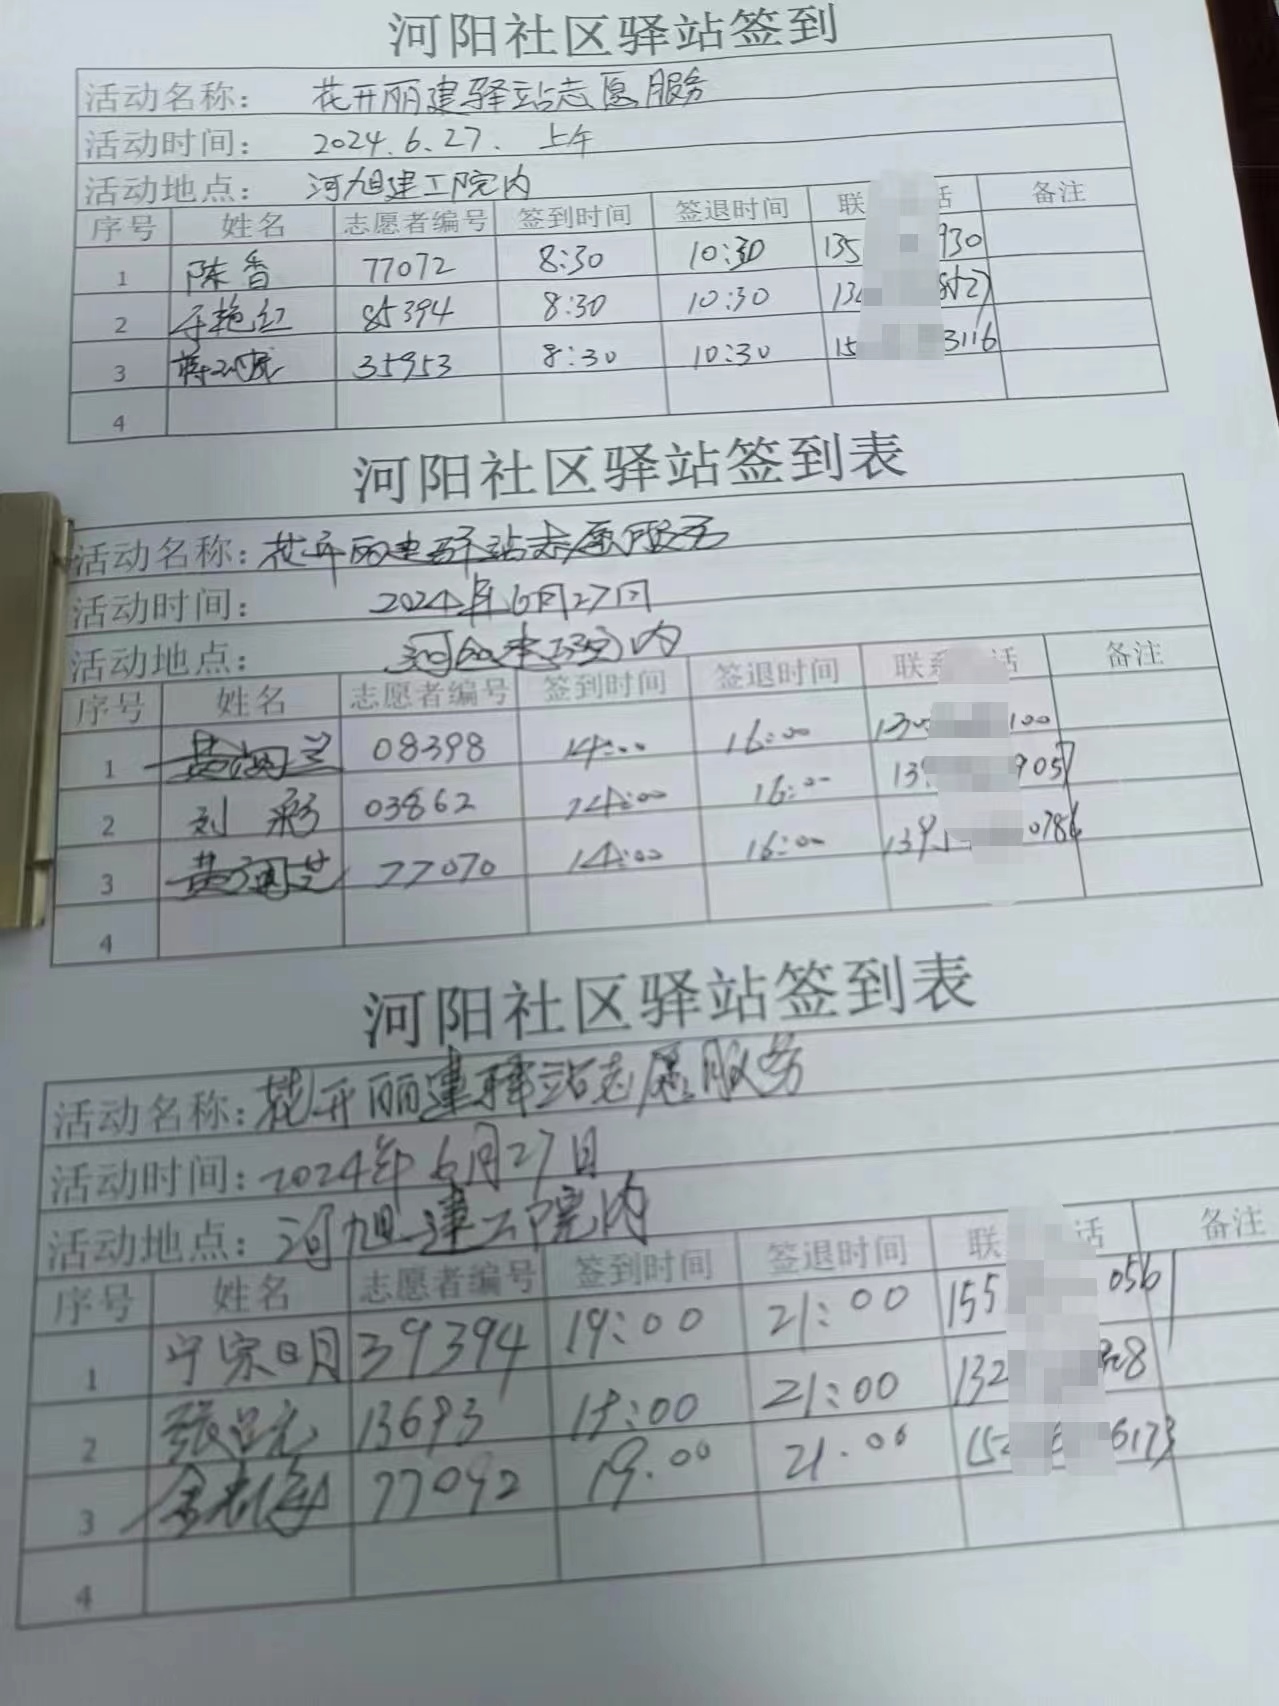 河阳社区驿站签到
活动名称： 花开丽建驿站志愿服务
活动时间： 2024.6.27. 上午
活动地点： 河旭建工院内
序号 姓名 志愿者编号 签到时间 签退时间 联 话 备注
1 陈香 77072 8:30 10:30 135 930
2 艳红 85394 8:30 10:30 13
3 蒋 35953 8:30 10:30 15 3116
4
河阳社区驿站签到表
活动名称：花开丽建驿站志愿服务
活动时间： 2024年6月27日
活动地点： 河旭建工院内
序号 姓名 志愿者编号 签到时间 签退时间 联系 话 备注
1 黄 兰 08398 14:00 16:00 13 100
2 刘彩 03862 14:00 16:00 13 9057
3 黄 芝 77070 14:00 16:00 139 0786
4
河阳社区驿站签到表
活动名称：花开丽建驿站志愿服务
活动时间：2024年6月27日
活动地点： 河旭建工院内
序号 姓名 志愿者编号 签到时间 签退时间 联 话 备注
1 宁家明 39394 19:00 21:00 155 056
2 张 元 13693 19:00 21:00 132 28
3 77092 19.00 21.00 152 6173
4